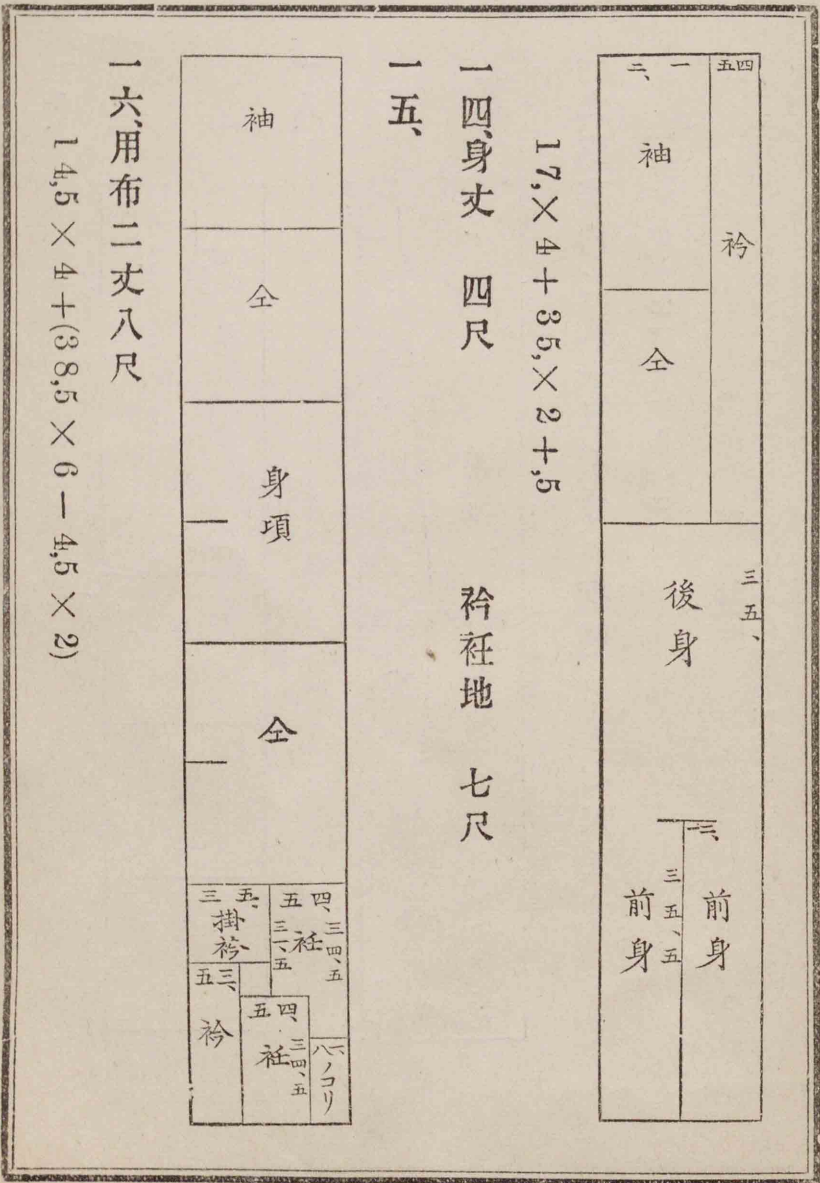 四五
衿
一二、
袖
仝
三五、
後身
一二、
前身
三五、五
前身
17,×4+35,×2+,5
一四、身丈 四尺 衿衽地 七尺
一五、
袖
仝
身頃
仝
四、五
衽
三四、五
三一、五
三五、
掛衿
三、五
衿
四、五
衽
三四、五
ノコリ
一六、用布二丈八尺
14,5×4+(38,5×6−4,5×2)